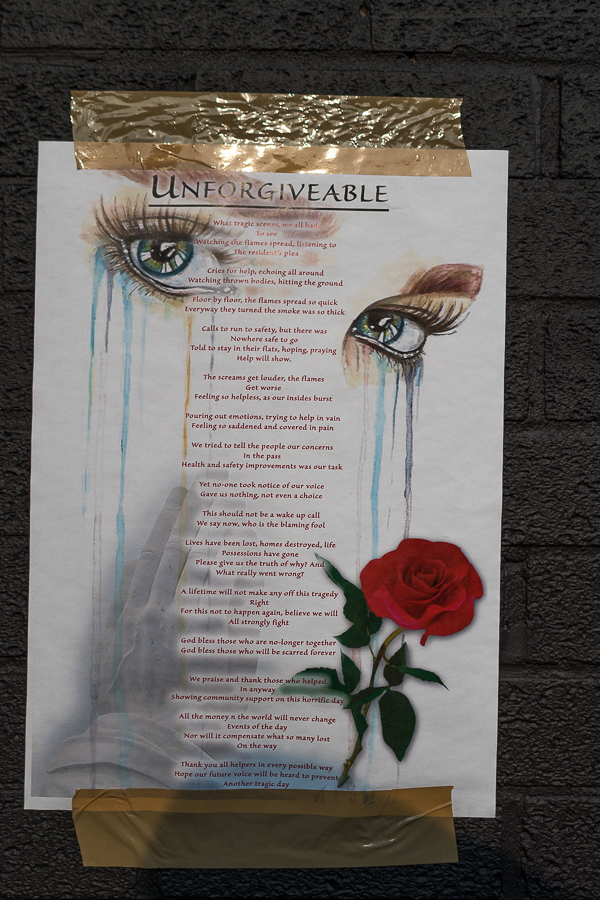 UNFORGIVEABLE
What tragic scenes, we all had
To see
Watching the flames spread, listening to
The resident's plea
Cries for help, echoing all around
Watching thrown bodies, hitting the ground
Floor by floor, the flames spread so quick
Everyway they turned the smoke was so thick
Calls to run to safety, but there was
Nowhere safe to go
Told to stay in their flats, hoping, praying
Help will show.
The screams get louder, the flames
Get worse
Feeling so helpless, as our insides burst
Pouring out emotions, trying to help in vain
Feeling so saddened and covered in pain
We tried to tell the people our concerns
In the pass
Health and safety improvements was our task
Yet no-one took notice of our voice
Gave us nothing, not even a choice
This should not be a wake up call
We say now, who is the blaming fool
Lives have been lost, homes destroyed, life
Possessions have gone
Please give us the truth of why? And
What really went wrong?
A lifetime will not make any off this tragedy
Right
For this not to happen again, believe we will
All strongly fight
God bless those who are no-longer together
God bless those who will be scarred forever
We praise and thank those who helped
In anyway
Showing community support on this horrific day
All the money n the world will never change
Events of the day
Nor will it compensate what so many lost
On the way
Thank you all helpers in every possible way
Hope our future voice will be heard to prevent
Another tragic day